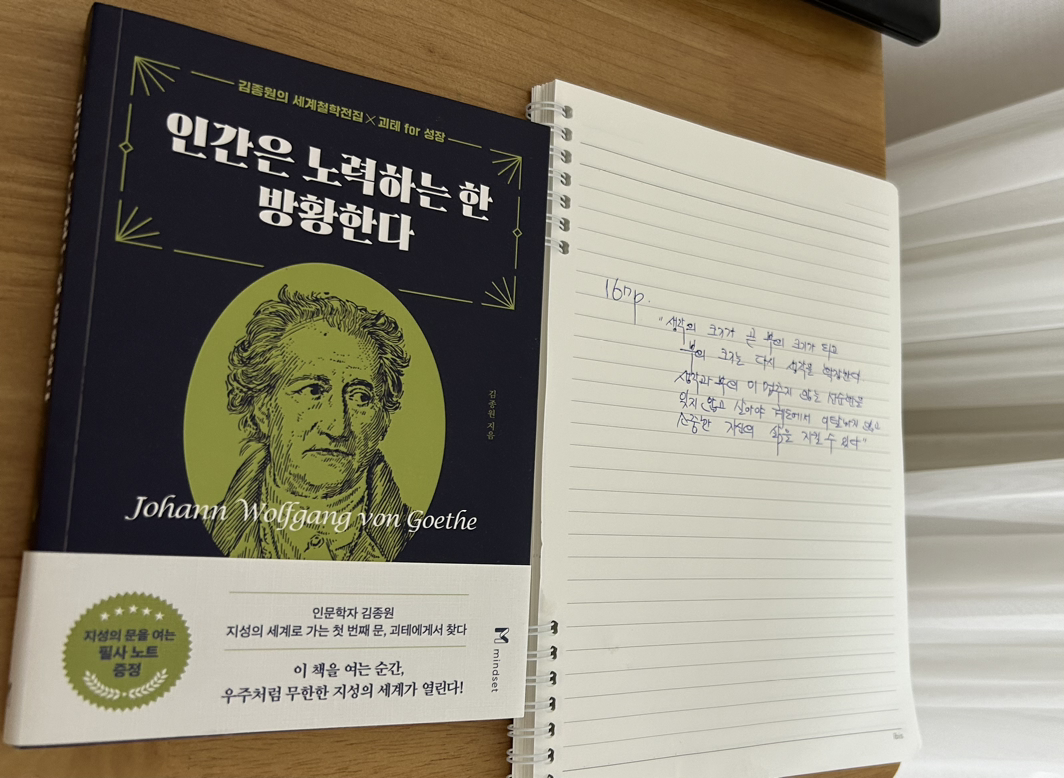 김종원의 세계철학전집×괴테 for 성장
인간은 노력하는 한
방황한다
김종원 지음
Johann Wolfgang von Goethe
지성의 문을 여는
필사 노트
증정
인문학자 김종원
지성의 세계로 가는 첫 번째 문, 괴테에게서 찾다
이 책을 여는 순간,
우주처럼 무한한 지성의 세계가 열린다!
mindset
167p.
"생각의 크기가 곧 부의 크기가 되고
부의 크기는 다시 생각을 확장한다
생각과 부의 이 멈추지 않는 선순환을
잊지 않고 살아야 계층에서 이탈하지 않고
소중한 자신의 삶을 지킬 수 있다"